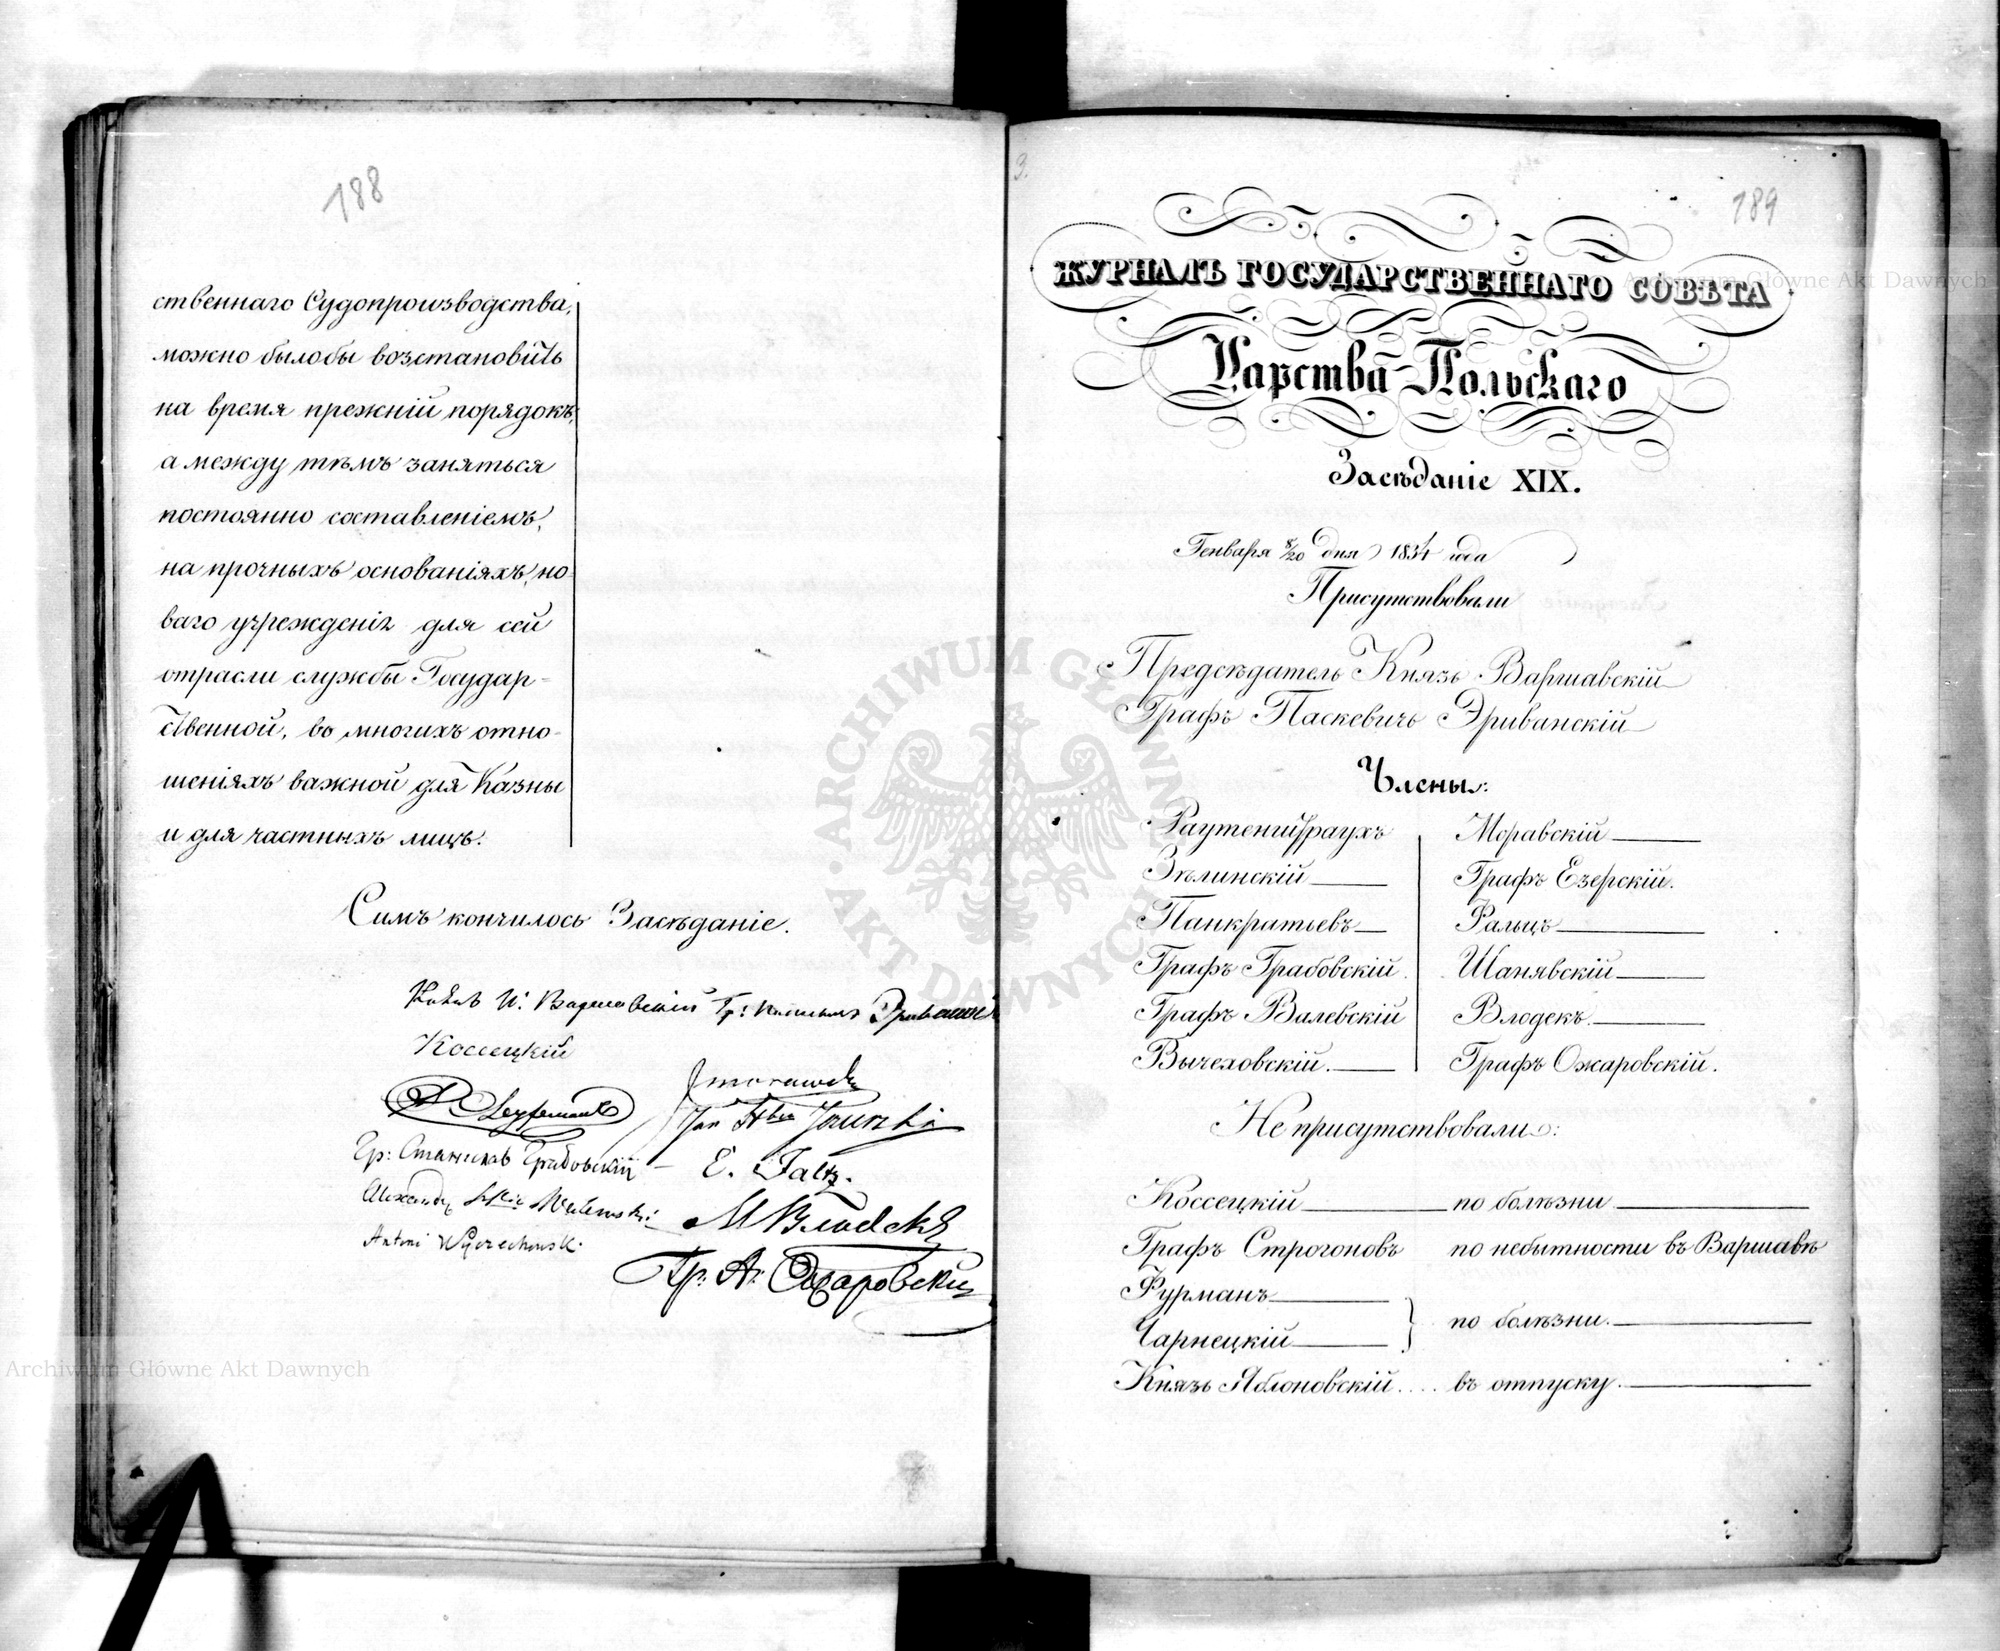 188
ственнаго Судопроизводства,
можно былобы возстановить
на время прежній порядокъ,
а между тѣмъ заняться
постоянно составленіемъ,
на прочныхъ основаніяхъ, но-
ваго учрежденія для сей
отрасли службы Государ-
ственной, во многихъ отно-
шеніяхъ важной для Казны
и для частныхъ лицъ.
Симъ кончилось Засѣданіе.
Варшавскій Гр: Эриванскій
Коссецкій
Гр: Станиславъ Грабовскій
E. Faltz.
М Влодекъ
Antoni Wyczechowski
Гр: А: Ожаровскій
189
ЖУРНАЛЪ ГОСУДАРСТВЕННАГО СОВѢТА
Царства Польскаго
Засѣданіе XIX.
Генваря 8/20 дня 1834 года
Присутствовали
Предсѣдатель Князь Варшавскій
Графъ Паскевичь Эриванскій
Члены:
Раутенштраухъ
Зѣлинскій
Панкратьевъ
Графъ Грабовскій.
Графъ Валевскій
Вычеховскій.
Моравскій
Графъ Езерскій.
Фальцъ
Шанявскій
Влодекъ.
Графъ Ожаровскій.
Не присутствовали:
Коссецкій по болѣзни
Графъ Строгоновъ по небытности въ Варшавѣ
Фурманъ
Чарнецкій по болѣзни.
Князь Яблоновскій .... въ отпуску.
Archiwum Główne Akt Dawnych
ARCHIWUM GŁÓWNE AKT DAWNYCH
Archiwum Główne Akt Dawnych